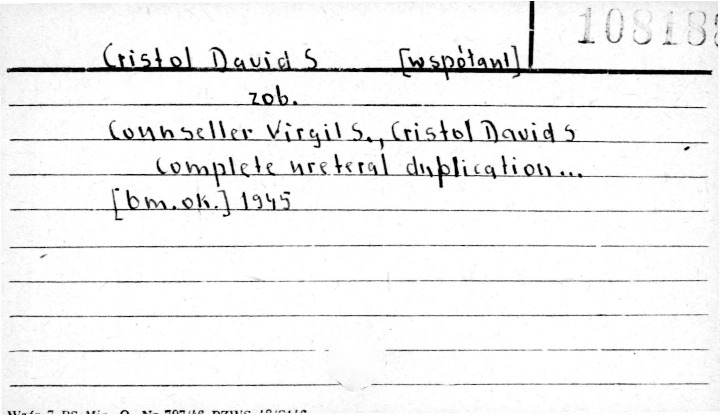 108185
Cristol David S [współaut]
zob.
Counseller Virgil S., Cristol David S
Complete ureteral duplication...
[bm.ok.] 1945